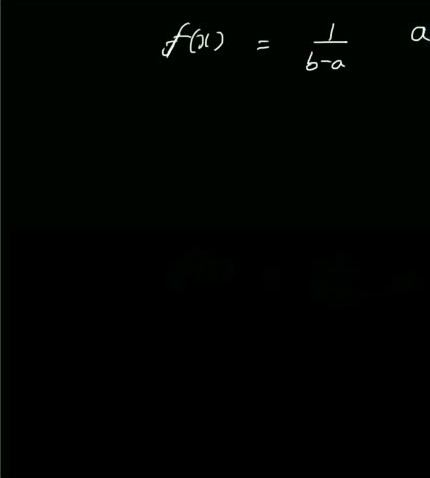 f(x) = 1/(b-a) a